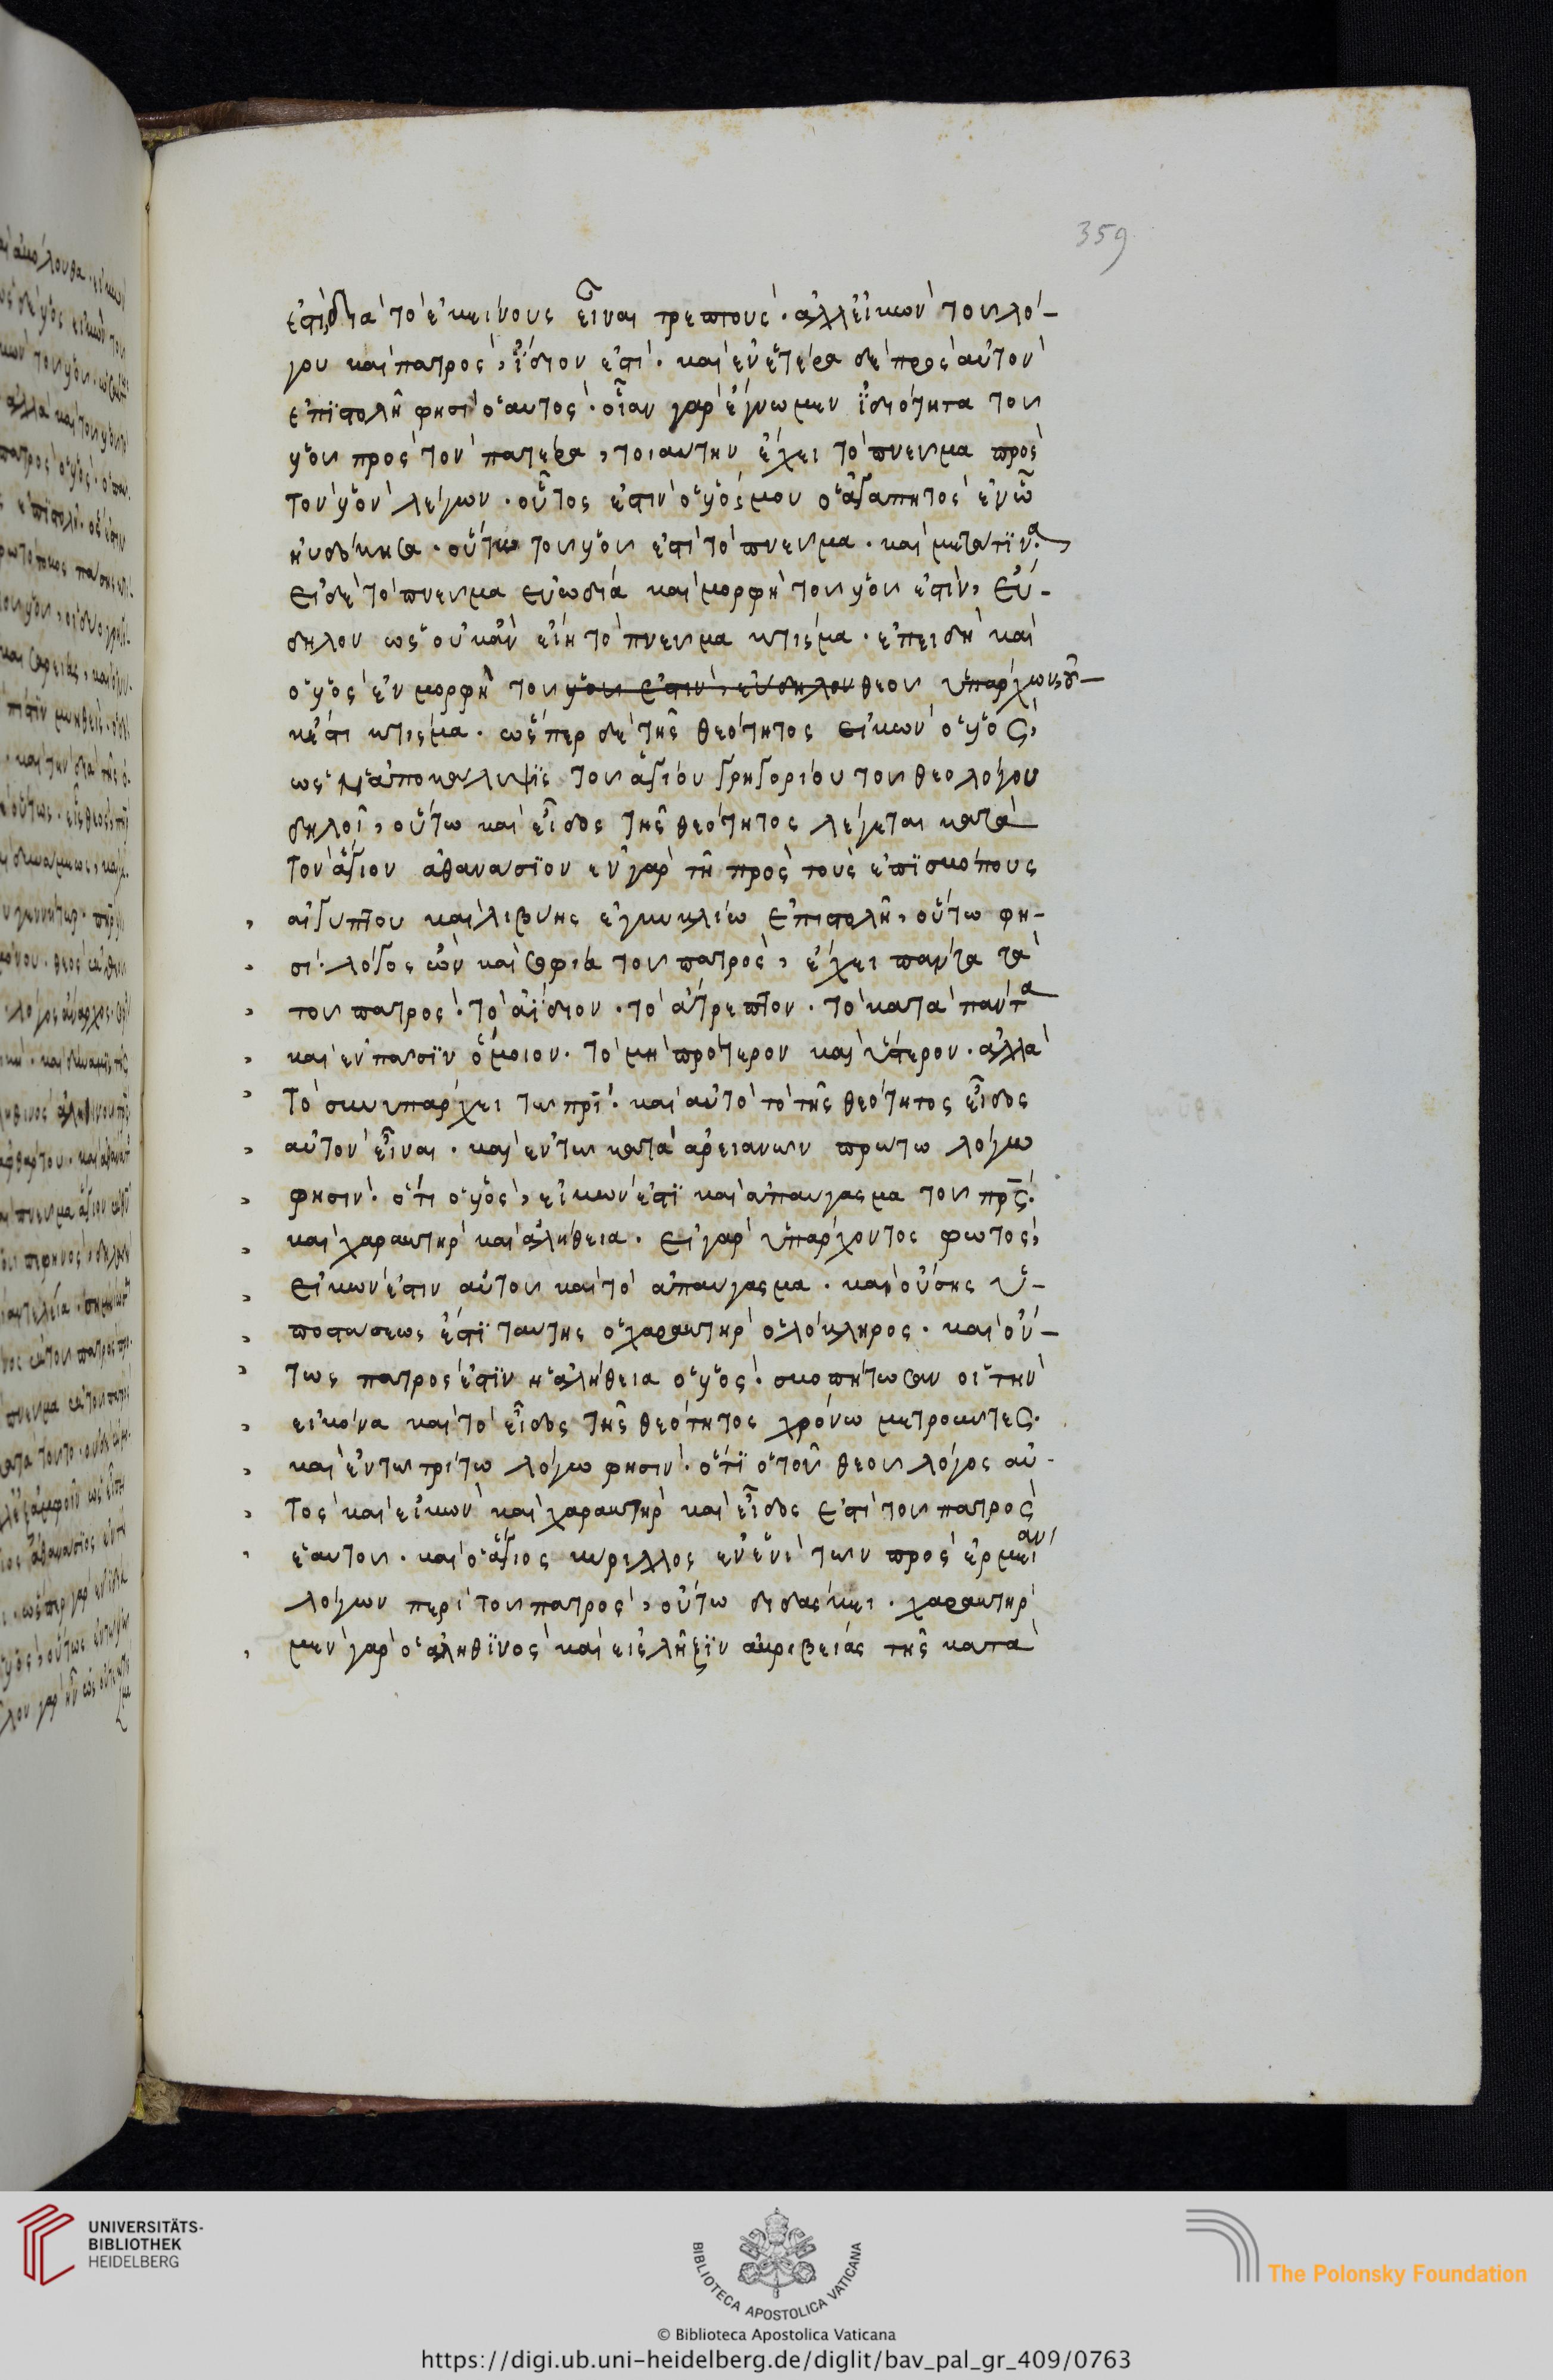 359
ἐστὶ, διὰ τὸ ἐκείνους εἶναι τρεπτούς· ἀλλ εἰκὼν τοῦ λό-
γου καὶ πατρὸς, ἴδιον ἐστί· καὶ ἐν ἑτέρα δὲ πρὸς αὐτὸν
ἐπϊστολῆ φησὶ ὁ αυτός· οἵαν γὰρ ἔγνωμεν ϊδιότητα τοῦ
υἱοῦ πρὸς τὸν πατέρα, τοιαυτην ἔχει τὸ πνευμα πρὸς
τὸν υἱὸν λέγων· οὗτος ἐστιν ὁ υἱός μου ὁ ἀγαπητὸς ἐν ὧ
ηὐδόκησα· οὕτω τοῦ υἱοῦ ἐστὶ τὸ πνευμα· καὶ μετα τϊνά·
εἰ δὲ τὸ πνευμα εὐωδία καὶ μορφὴ τοῦ υἱοῦ ἐστὶν, εὔ-
δηλον ὡς οὐκ ἂν εἴη τὸ πνευμα κτίσμα· ἐπειδὴ καὶ
ὁ υἱὸς ἐν μορφῆ τοῦ υἱοῦ ἐστὶν, εὔδηλον θεοῦ ὑπάρχων, οὐ-
κ ἔστι κτίσμα· ὥσπερ δὲ τῆς θεότητος εἰκὼν ὁ υἱὸς,
ὡς ἡ ἀποκάλυψϊς τοῦ ἁγίου γρηγορίου τοῦ θεολόγου
δηλοῖ, οὕτω καὶ εἶδος τῆς θεότητος λέγεται κατὰ
τὸν ἅγιον ἀθανασϊον ἐν γὰρ τῆ πρὸς τοὺς ἐπϊσκόπους
αἰγύπτου καὶ λιβύης ἐγκυκλίω ἐπιστολῆ, οὕτω φη-
σί· λόγος ὢν καὶ σοφία τοῦ πατρὸς, ἔχει πάντα τὰ
τοῦ πατρός· τὸ ἀΐδιον· τὸ ἄτρεπτον· τὸ κατὰ πάντα
καὶ ἐν πασϊν ὅμοιον· τὸ μὴ πρότερον καὶ ὕστερον· ἀλλὰ
τὸ συνυπάρχει τω πρῒ· καὶ αὐτὸ τὸ τῆς θεότητος εἶδος
αὐτὸν εἶναι· καὶ ἐν τω κατὰ ἀρειανων πρωτω λόγω
φησίν· ὅτι ὁ υἱὸς, εἰκὼν ἐστϊ καὶ ἀπαυγασμα τοῦ πρς·
καὶ χαρακτὴρ καὶ ἀλήθεια· εἰ γὰρ ὑπάρχοντος φωτὸς,
εἰκὼν ἐστιν αὐτοῦ καὶ τὸ ἀπαυγασμα· καὶ οὔσης ὑ-
ποστασεως ἐστϊ ταυτης ὁ χαρακτὴρ ὁλόκληρος· καὶ ὄν-
τως πατρὸς ἐστϊν ἡ ἀλήθεια ὁ υἱός· σκοπήτωσαν οἱ τὴν
εἰκόνα καὶ τὸ εἶδος τῆς θεότητος χρόνω μετροῦντες·
καὶ ἐν τω τρίτω λόγω φησίν· ὅτϊ ὁ τοῦ θεοῦ λόγος αὐ-
τὸς καὶ εἰκὼν καὶ χαρακτὴρ καὶ εἶδος ἐστὶ τοῦ πατρὸς
ἑαυτοῦ· καὶ ὁ ἅγιος κυριλλος ἐν ἑνὶ των πρὸς ἑρμείαν
λόγων περὶ τοῦ πατρὸς, οὕτω διδάσκει· χαρακτὴρ
μὲν γὰρ ὁ ἀληθϊνὸς καὶ εἰς λῆξϊν ἀκριβείας τῆς κατὰ
UNIVERSITÄTS-
BIBLIOTHEK
HEIDELBERG
BIBLIOTECA APOSTOLICA VATICANA
The Polonsky Foundation
© Biblioteca Apostolica Vaticana
https://digi.ub.uni-heidelberg.de/diglit/bav_pal_gr_409/0763